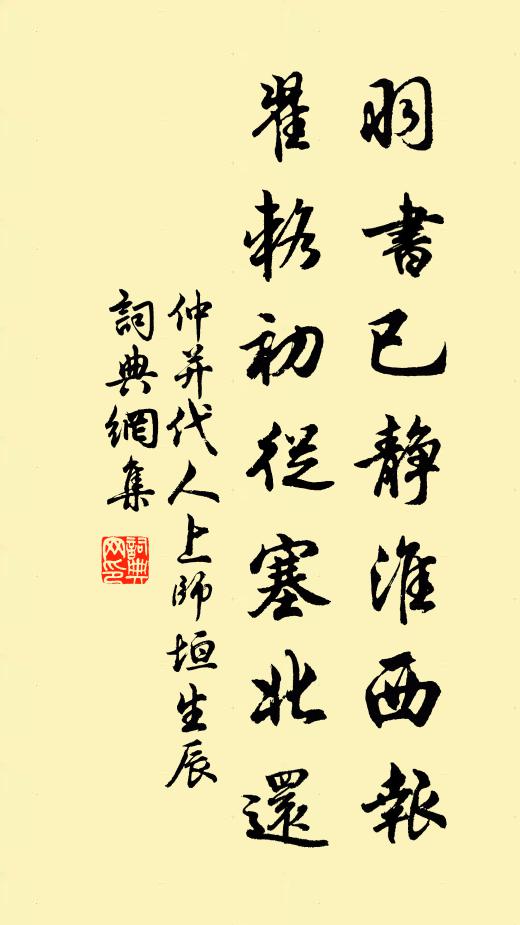 羽書已靜淮西報
翟輅初從塞北還
仲并代人上師垣生辰
詞典網集
詞典網印